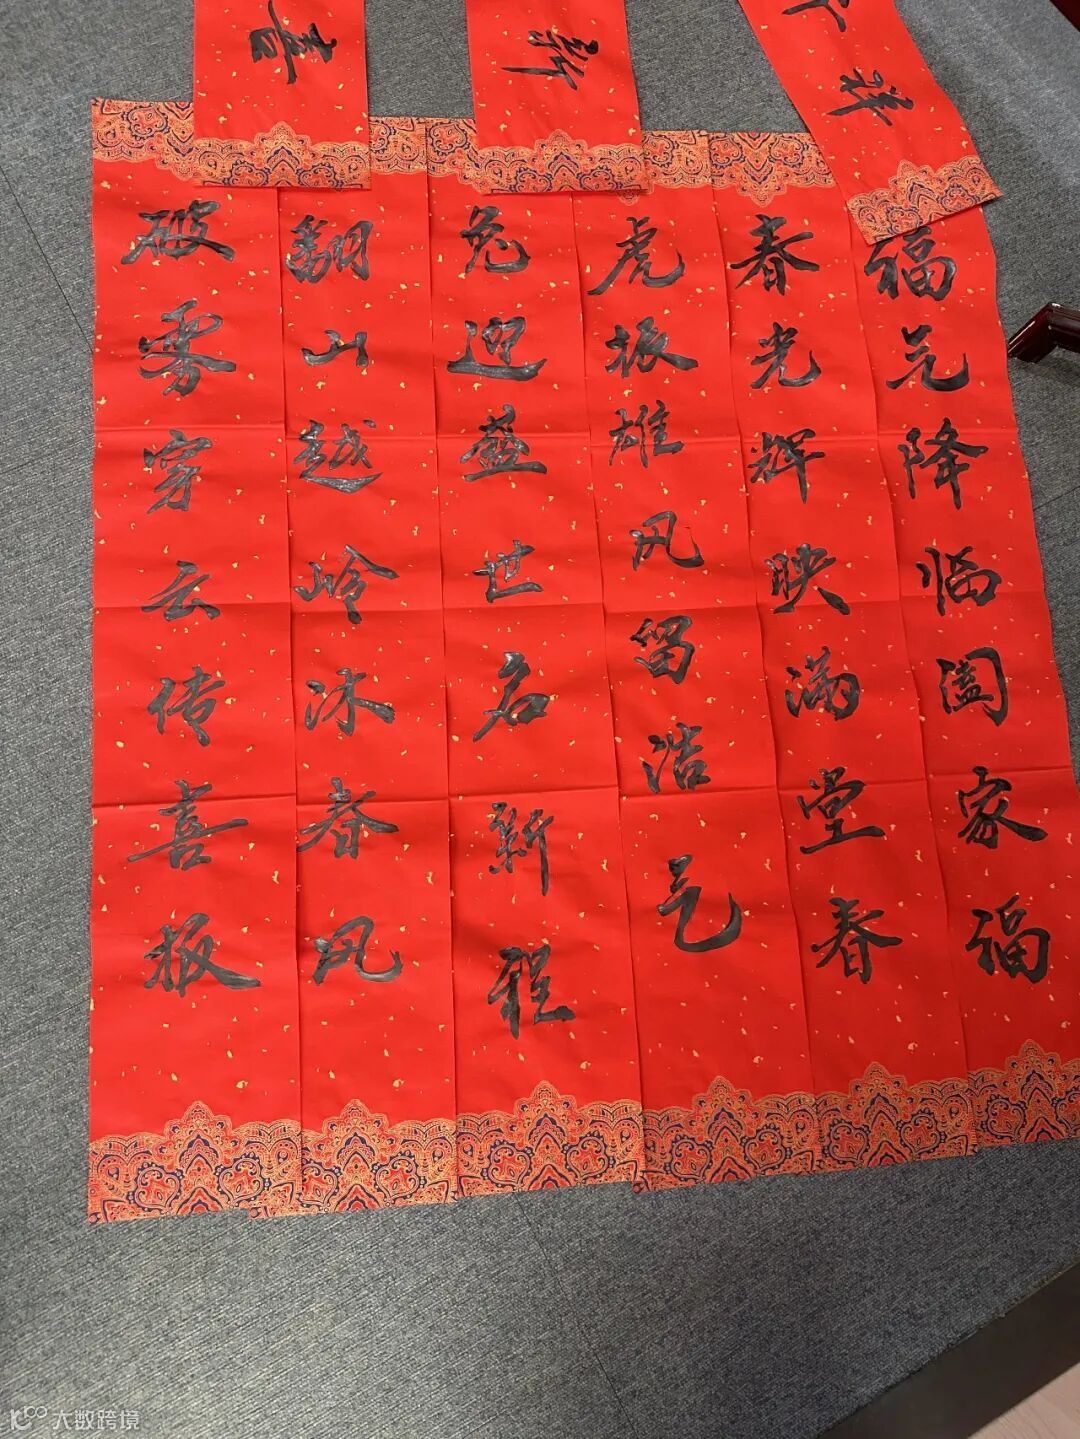 新
祥
福气降临阖家福
春光辉映满堂春
虎振雄风留浩气
兔迎盛世启新程
翻山越岭沐春风
破雾穿云传喜报
大数跨境